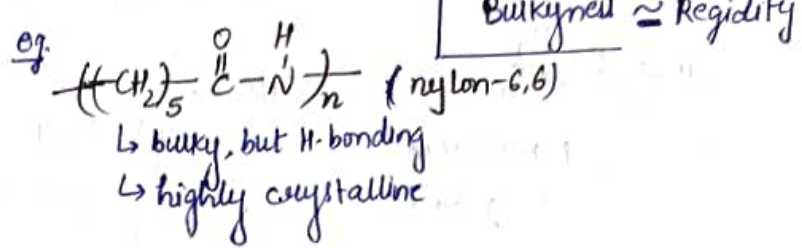 Bulkyness ≃ Regidity
eg.
O H
((CH₂)₅ - C - N)n (nylon-6,6)
↳ bulky, but H-bonding
↳ highly crystalline